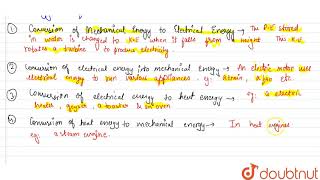 ① Conversion of Mechanical Energy to Electrical Energy → The P.E stored
in water is changed to K.E when it falls from a height. This K.E.
rotates a turbine to produce electricity
② Conversion of electrical energy into mechanical energy → An electric motor uses
electrical energy to run various appliances eg: a train, a fan etc.
③ Conversion of electrical energy to heat energy → eg: a electric
heater, geyser, a toaster & an oven
④ Conversion of heat energy to mechanical energy → In heat engines
eg: a steam engine.
doubtnut